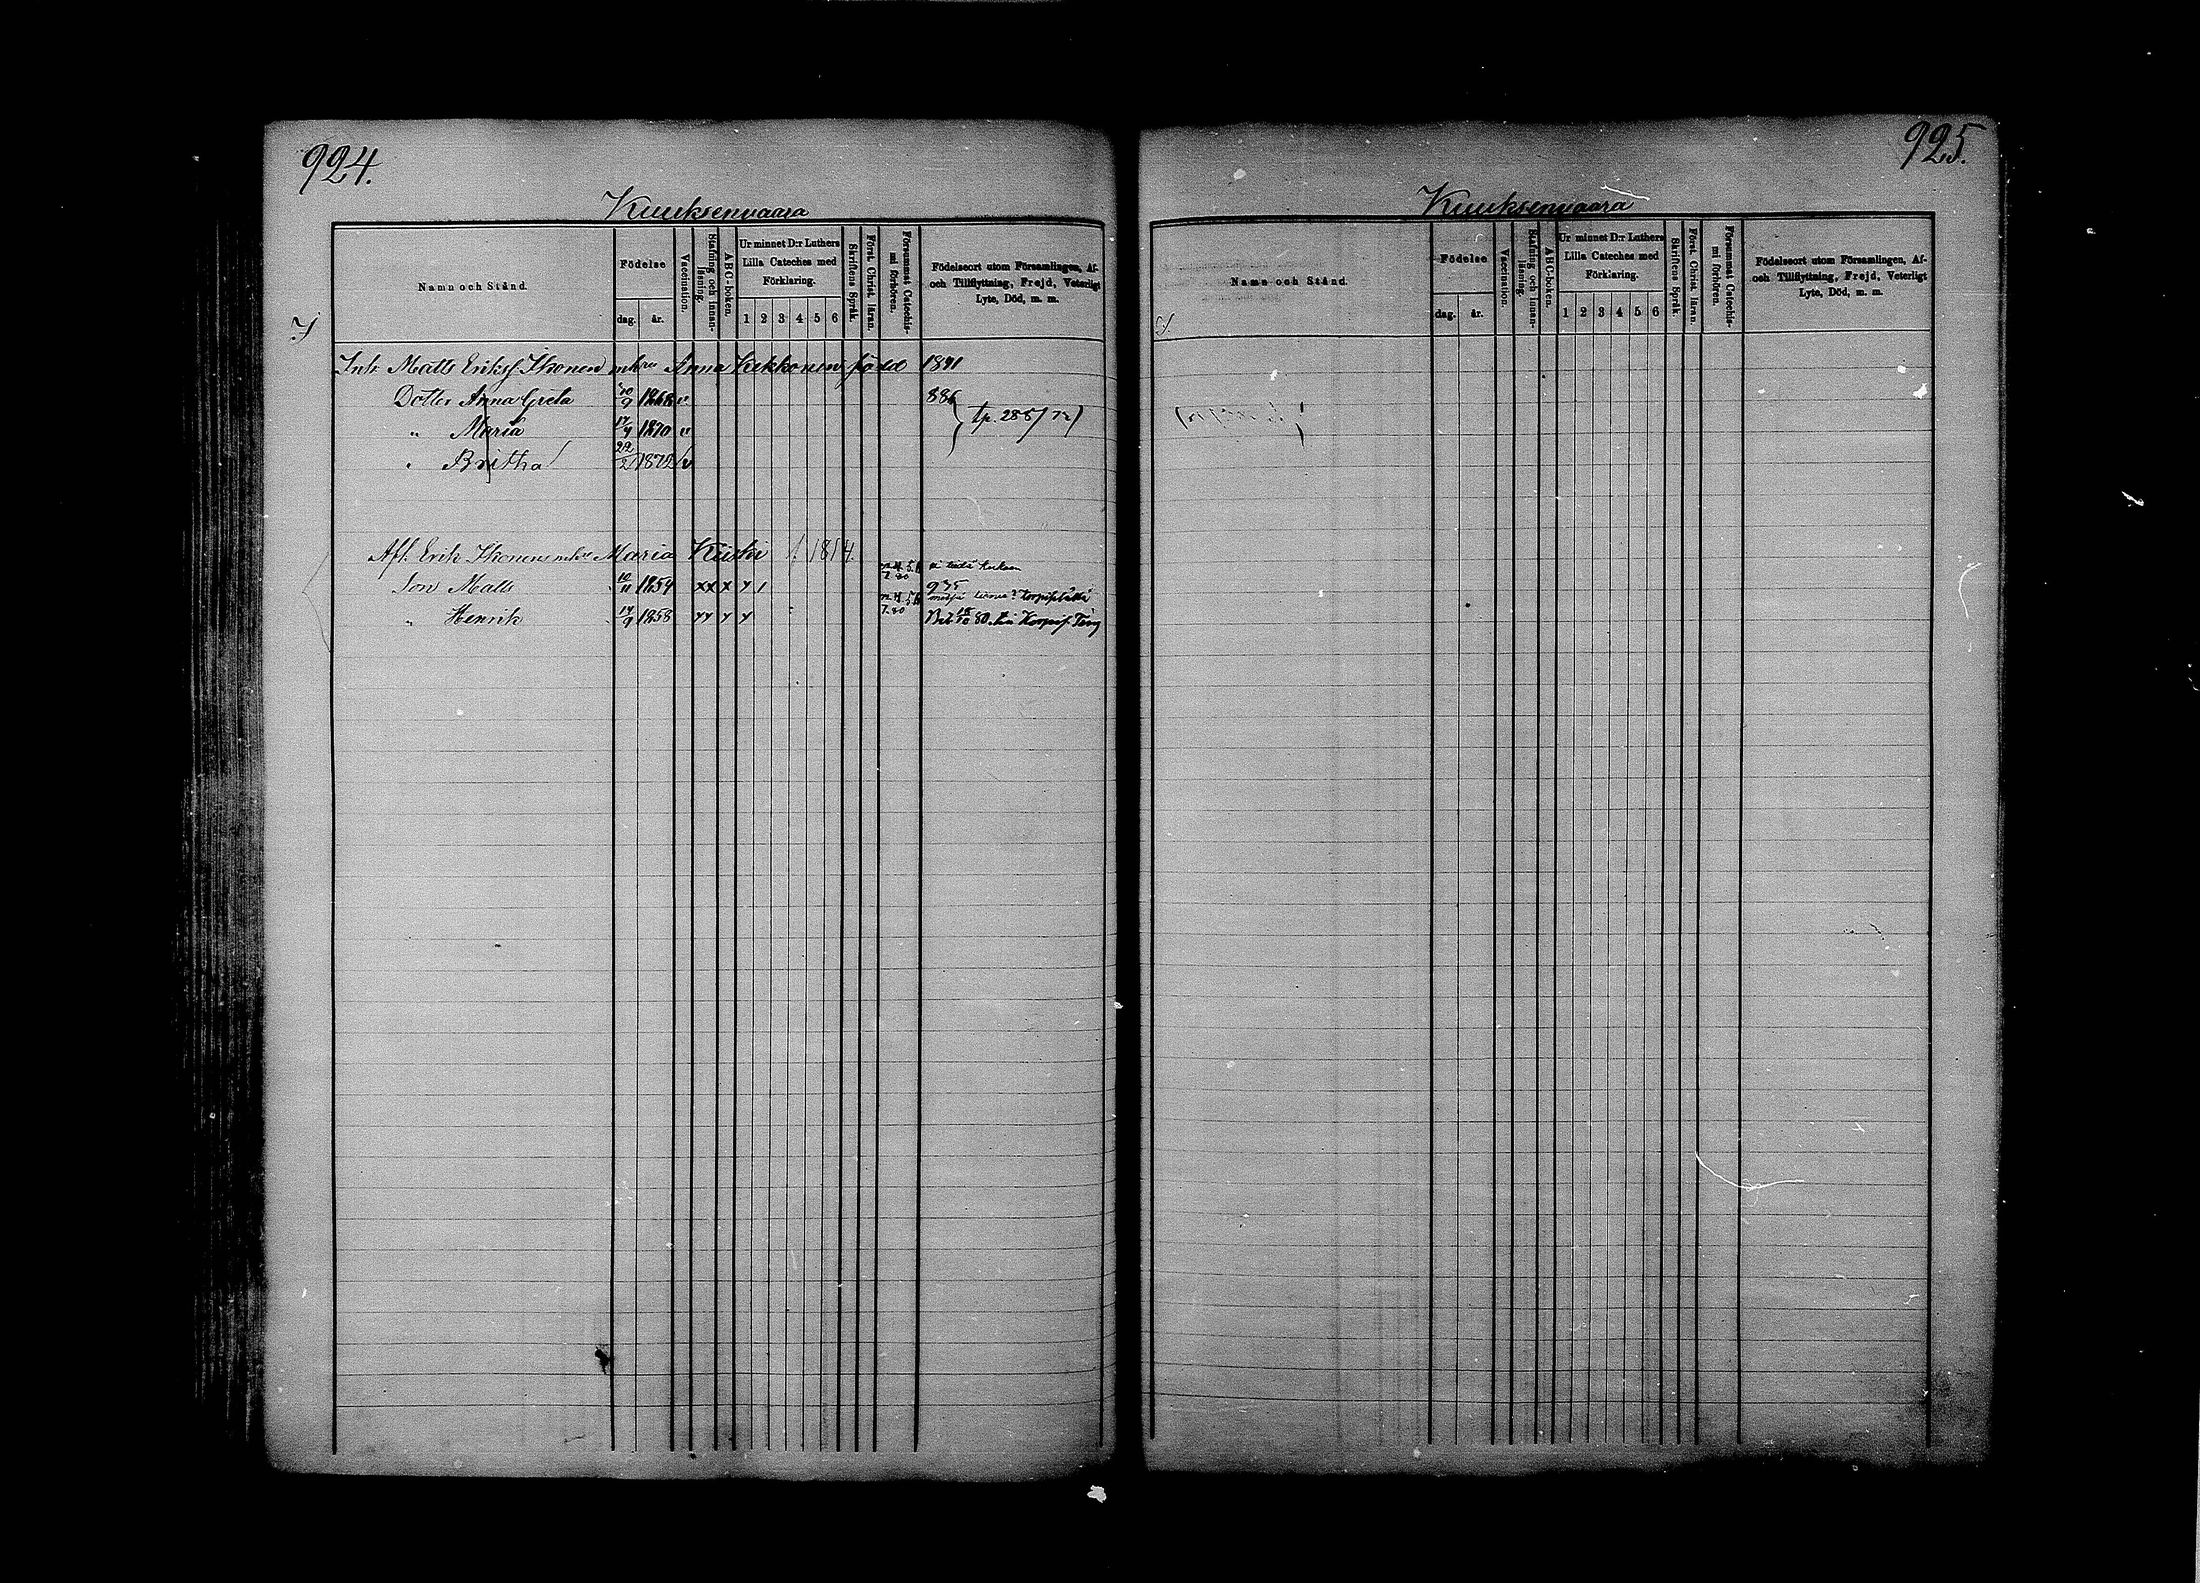 924.
Kuuksenvaara
Namn och Stånd.
Födelse
dag. år.
Vaccination.
Stafning och innanläsning.
ABC-boken.
Ur minnet D:r Luthers
Lilla Cateches med
Förklaring.
1 2 3 4 5 6
Skriftens Språk.
Först. Christ. läran.
Försummat Catechismi förhören.
Födelseort utom Församlingen, Af-
och Tillflyttning, Frejd, Veterligt
Lyte, Död, m. m.
Inh Matts Eriksf Ikonen Anna Kekkonen född 1841
Dotter Anna Greta 10/9 1868 v. 886
" Maria 17/4 1870 v
" Britha 22/2 1872 v
Afl. Erik Ikonens Maria Kiiski f. 1814.
Son Matts 10/11 1854 xx x y 1 975
" Henrik 14/9 1858 yy y y
925.
Kuuksenvaara
Namn och Stånd.
Födelse
dag. år.
Vaccination.
Stafning och innanläsning.
ABC-boken.
Ur minnet D:r Luthers
Lilla Cateches med
Förklaring.
1 2 3 4 5 6
Skriftens Språk.
Först. Christ. läran.
Försummat Catechismi förhören.
Födelseort utom Församlingen, Af-
och Tillflyttning, Frejd, Veterligt
Lyte, Död, m. m.